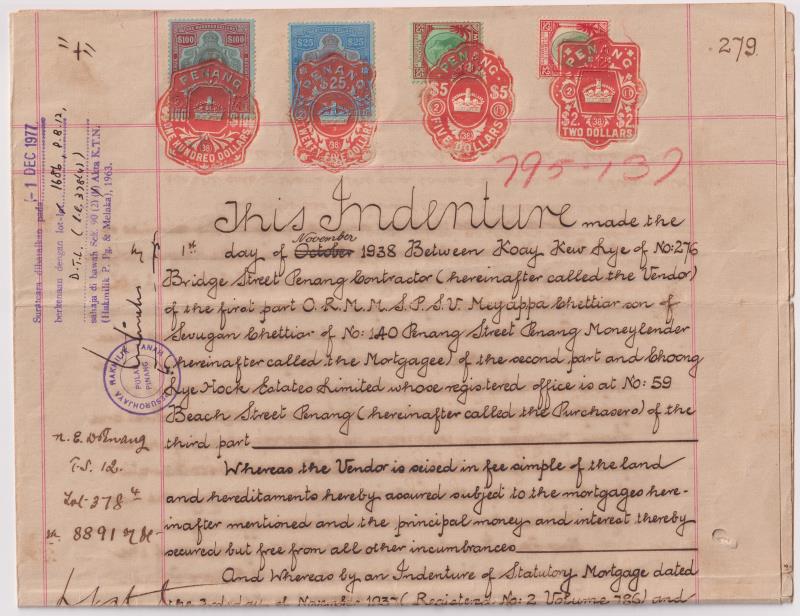 279
$100 $100
$25 $25
PENANG
ONE HUNDRED DOLLARS
PENANG
$25
TWENTY FIVE DOLLARS
PENANG
$5 $5
FIVE DOLLARS
PENANG
$2 $2
TWO DOLLARS
795-137
- 1 DEC 1977
Suratcara diharamkan pada
berkenaan dengan lot-lot 1686, P.B.12,
D.T.L. (I.C. 378(4))
sahaja di bawah Sek. 90 (2) Akta K.T.N.
(Hakmilik P. Pg. & Melaka), 1963.
PESUROHJAYA HAKMILIK TANAH
PULAU
PINANG
This Indenture made the
November
1st day of October 1938 Between Koay Kew Aye of No: 276
Bridge Street Penang Contractor (hereinafter called the Vendor)
of the first part O.R.M.M.S.P.S.V. Meyappa Chettiar son of
Sevugan Chettiar of No: 140 Penang Street Penang Moneylender
(hereinafter called the Mortgagee) of the second part and Choong
Lye Hock Estates Limited whose registered office is at No: 59
Beach Street Penang (hereinafter called the Purchasers) of the
third part
Whereas the Vendor is seised in fee simple of the land
and hereditaments hereby assured subject to the mortgages here-
inafter mentioned and the principal money and interest thereby
secured but free from all other incumbrances
And Whereas by an Indenture of Statutory Mortgage dated
the 3rd day of November 1937 (Registered No: 2 Volume 786) and
N.E.D Penang
T.S. 12.
Lot 378 4
8891